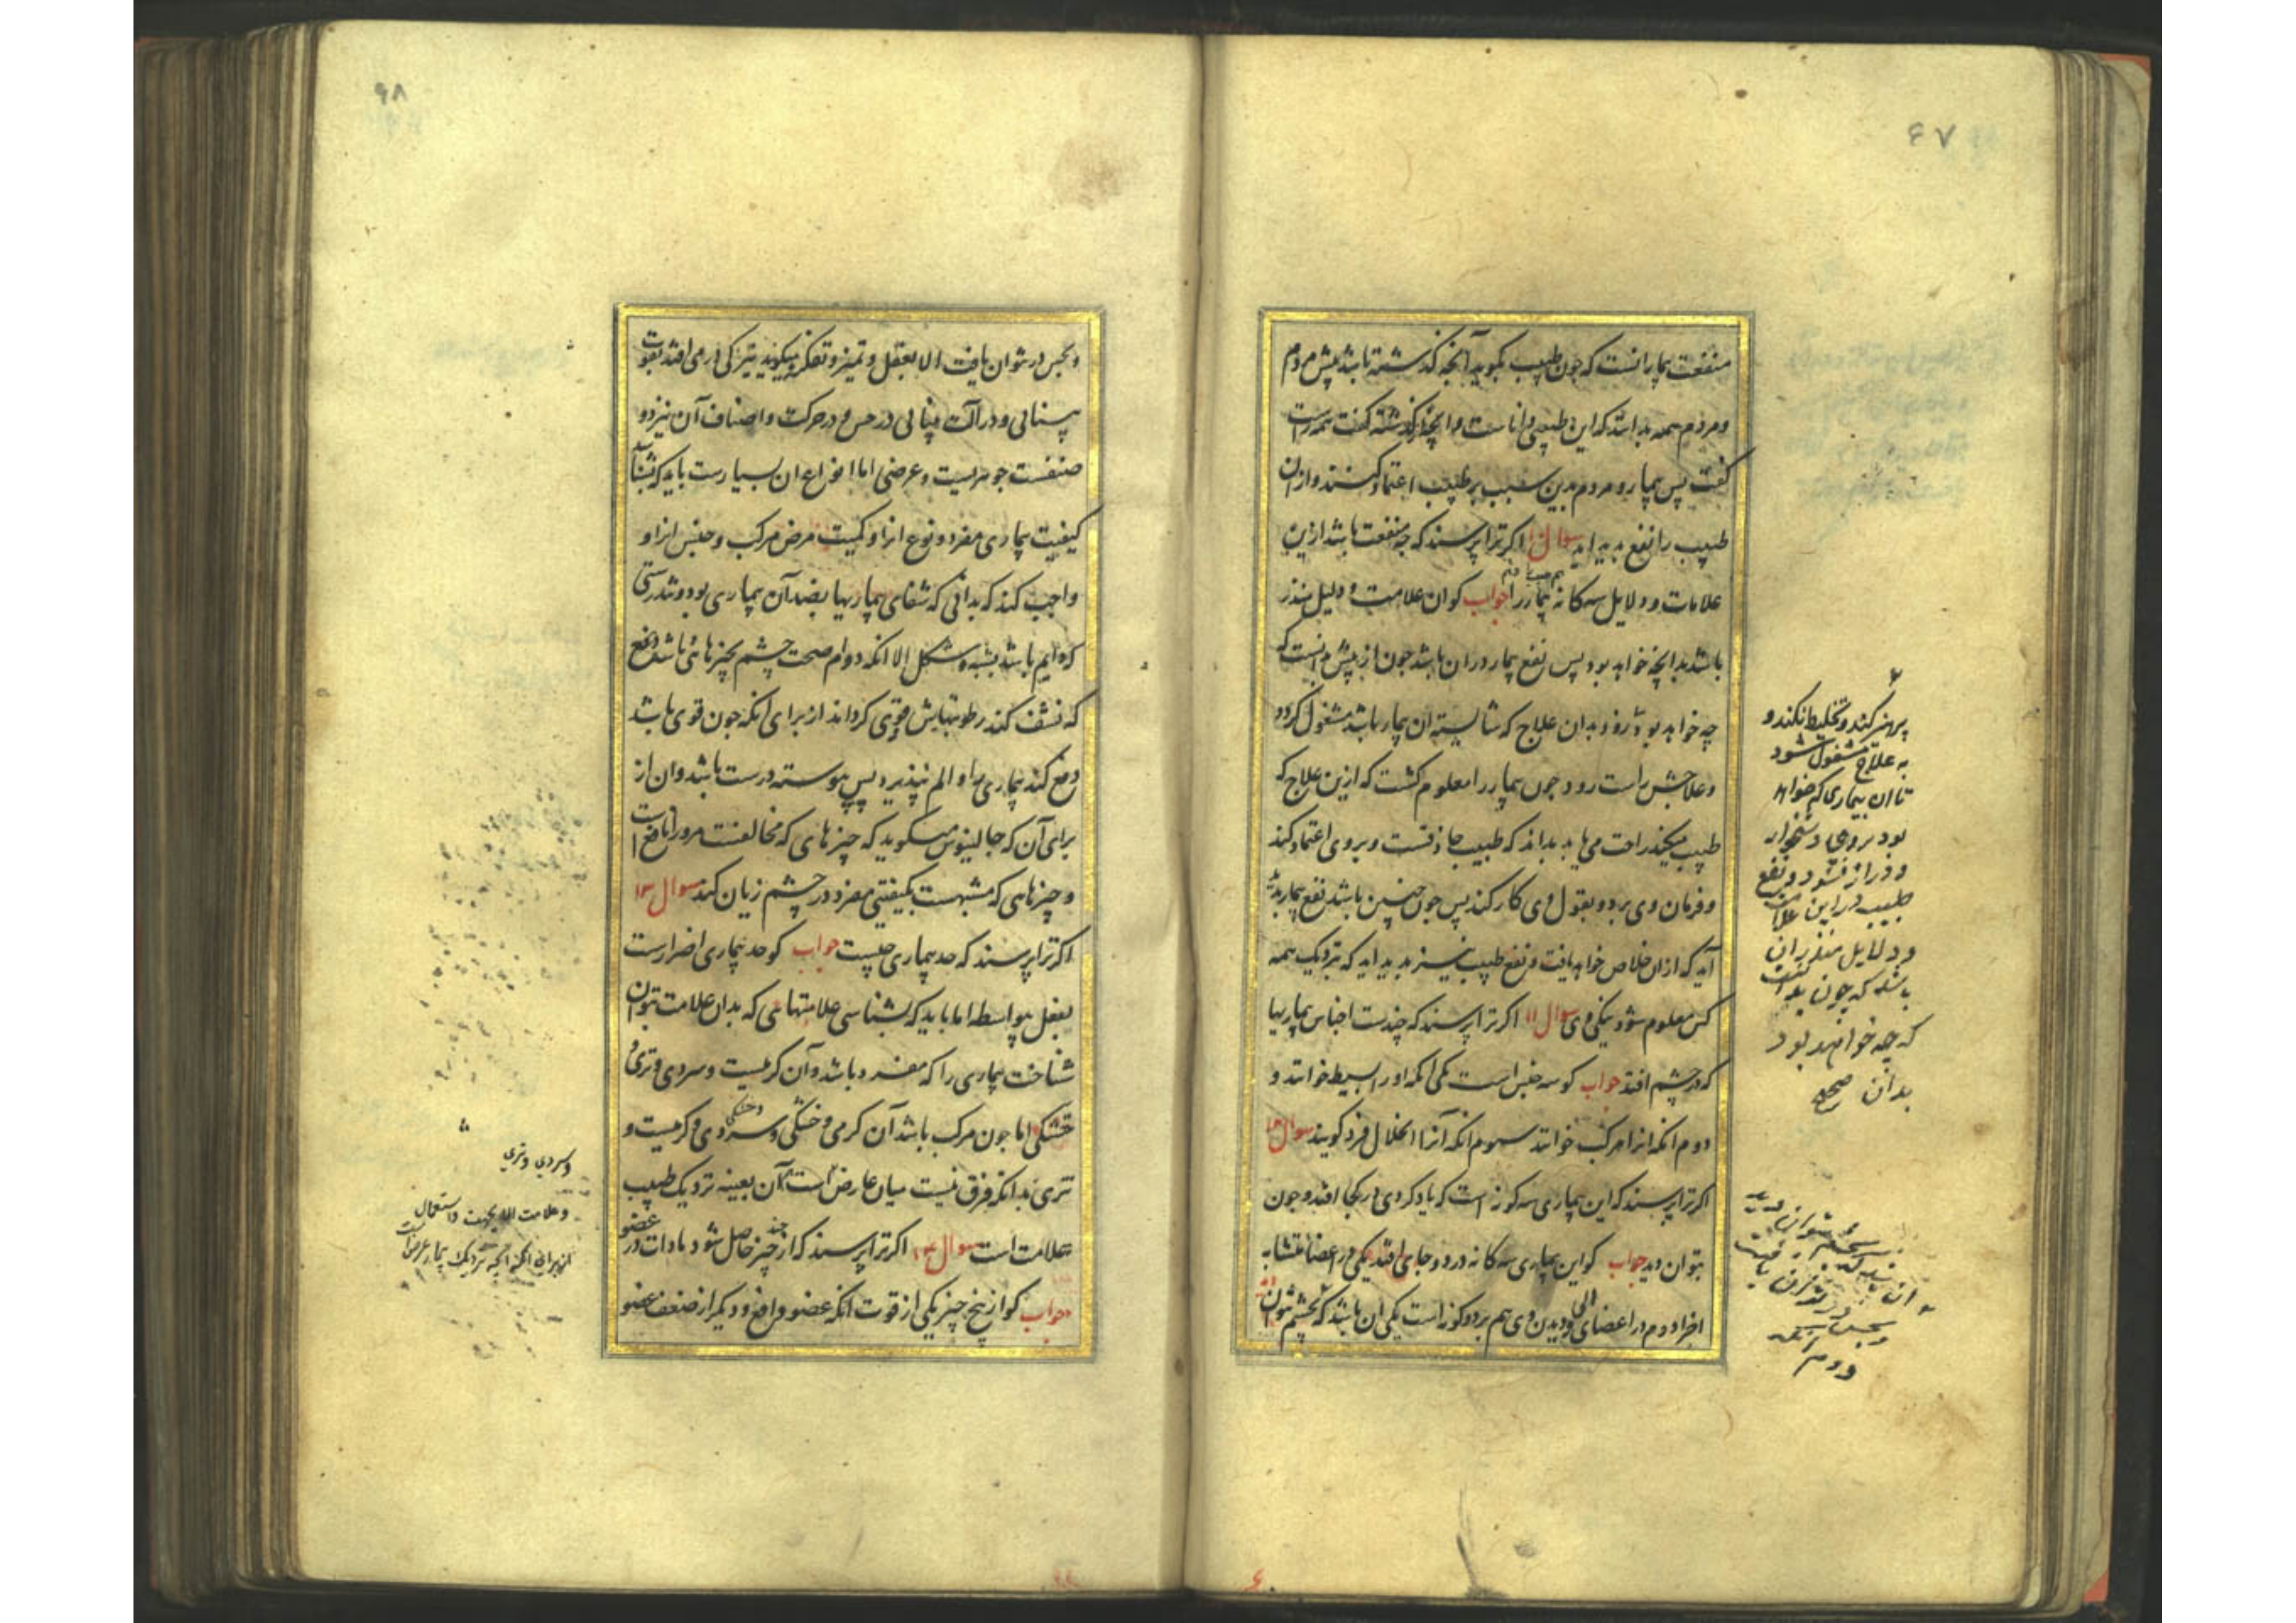 ۶۷
منفعت بیمار انست که چون طبیب بگوید آنچه گذشته باشد پیش مردم
و مردم همه بدانند که این طبیبی داناست و آنچه از گذشته گفت همه راست
گفت پس بیمار و مردم بدین سبب بر طبیب اعتماد کنند و از ان
طبیب را نفع پدید اید سوال ۱۰ اکر ترا پرسند که چه منفعت باشد ازین
علامات و دلایل سه کانه بیمار را جواب کو ان علامت و دلیل منذر
باشد بدانچه خواهد بود پس نفع بیمار در ان باشد چون از پیش بدانست که
چه خواهد بود زود بدان علاج که شایسته ان بیمار باشد مشغول کردد
و علاجش راست رود چون بیمار را معلوم کشت که ازین علاج که
طبیب میکند راحت می یابد بداند که طبیب حاذقست و بر وی اعتماد کند
و فرمان وی برد و بقول وی کار کند پس چون چنین باشد نفع بیمار پدید
آید که ازان خلاص خواهد یافت و نفع طبیب نیز پدید اید که نزدیک همه
کس معلوم شود نیکی وی سوال ۱۱ اکر ترا پرسند که چندست اجناس بیماریها
که در چشم افتد جواب کو سه جنس است یکی انکه او را بسیط خوانند و
دوم انکه انرا مرکب خوانند سوم انکه آنرا انحلال فرد کویند سوال ۱۲
اکر ترا پرسند که این بیماری سه کونه است که یاد کردی در کجا افتد و چون
بتوان دید جواب کو این بیماری سه کانه در دو جای افتد یکی در اعضا متشابه
اجزا دوم در اعضای الی و دیدن وی هم بر دو کونه است یکی ان باشد که بچشم بتوان
پرهیز کند و تخلیط نکند و
به علاج مشغول شود
تا ان بیماری که خواهد
بود بر وی دشخوار
و دراز نشود و نفع
طبیب در این علامت
و دلایل منذر ان
باشد که چون بدانست
که چه خواهد بود
بدان صحیح
دوم انکه
۶۸
و بحس در نتوان یافت الا بعقل و تمیز و تفکر و میکویند تیزکی در می افتد بقوت
بینائی و در آلت بینائی در حس و در حرکت و اصناف آن نیز دو
صنفست جوهریست و عرضی اما انواع ان بسیارست باید که بشناسد
کیفیت بیماری مفرد و نوع انرا و کمیت مرض مرکب و جنس انرا و
واجب کند که بدانی که شفای بیماریها بضد آن بیماری بود و تندرستی
که دایم باشد بشبه و شکل الا انکه دوام صحت چشم بچیزهائی باشد
که نشف کند رطوبتهایش و قوی کرداند از برای انکه چون قوی باشد
دفع کند بیماری را و الم نپذیرد پس پیوسته درست باشد و ان از
برای آن که جالینوس میکوید که چیزهای که مخالفست مرورا نافع است
و چیزهایی که مشبهست بکیفیتی مفرد در چشم زیان کند سوال ۱۳
اکر ترا پرسند که حد بیماری چیست جواب کو حد بیماری اضرارست
بفعل بی واسطه اما باید که بشناسی علامتهایی که بدان علامت بتوان
شناخت بیماری را که مفرد باشد و آن کرمیست و سردی و تری و
خشکی اما چون مرکب باشد آن کرمی و خشکی و سردی و خشکی و کرمیست و
تری بدانکه فرق نیست میان عارض است آن بعینه نزدیک طبیب
علامت است سوال ۱۴ اکر ترا پرسند که از چند چیز حاصل شود مادات در عضو
جواب کو از پنج چیز یکی از قوت انکه عضو دافع و دیکر از ضعف عضو
و سردی و تری
و علامت